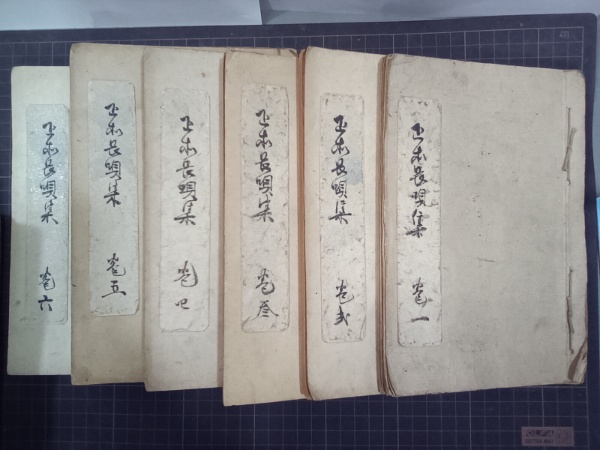 正本長唄集 巻一
正本長唄集 巻弐
正本長唄集 巻叁
正本長唄集 巻四
正本長唄集 巻五
正本長唄集 巻六
OLFA